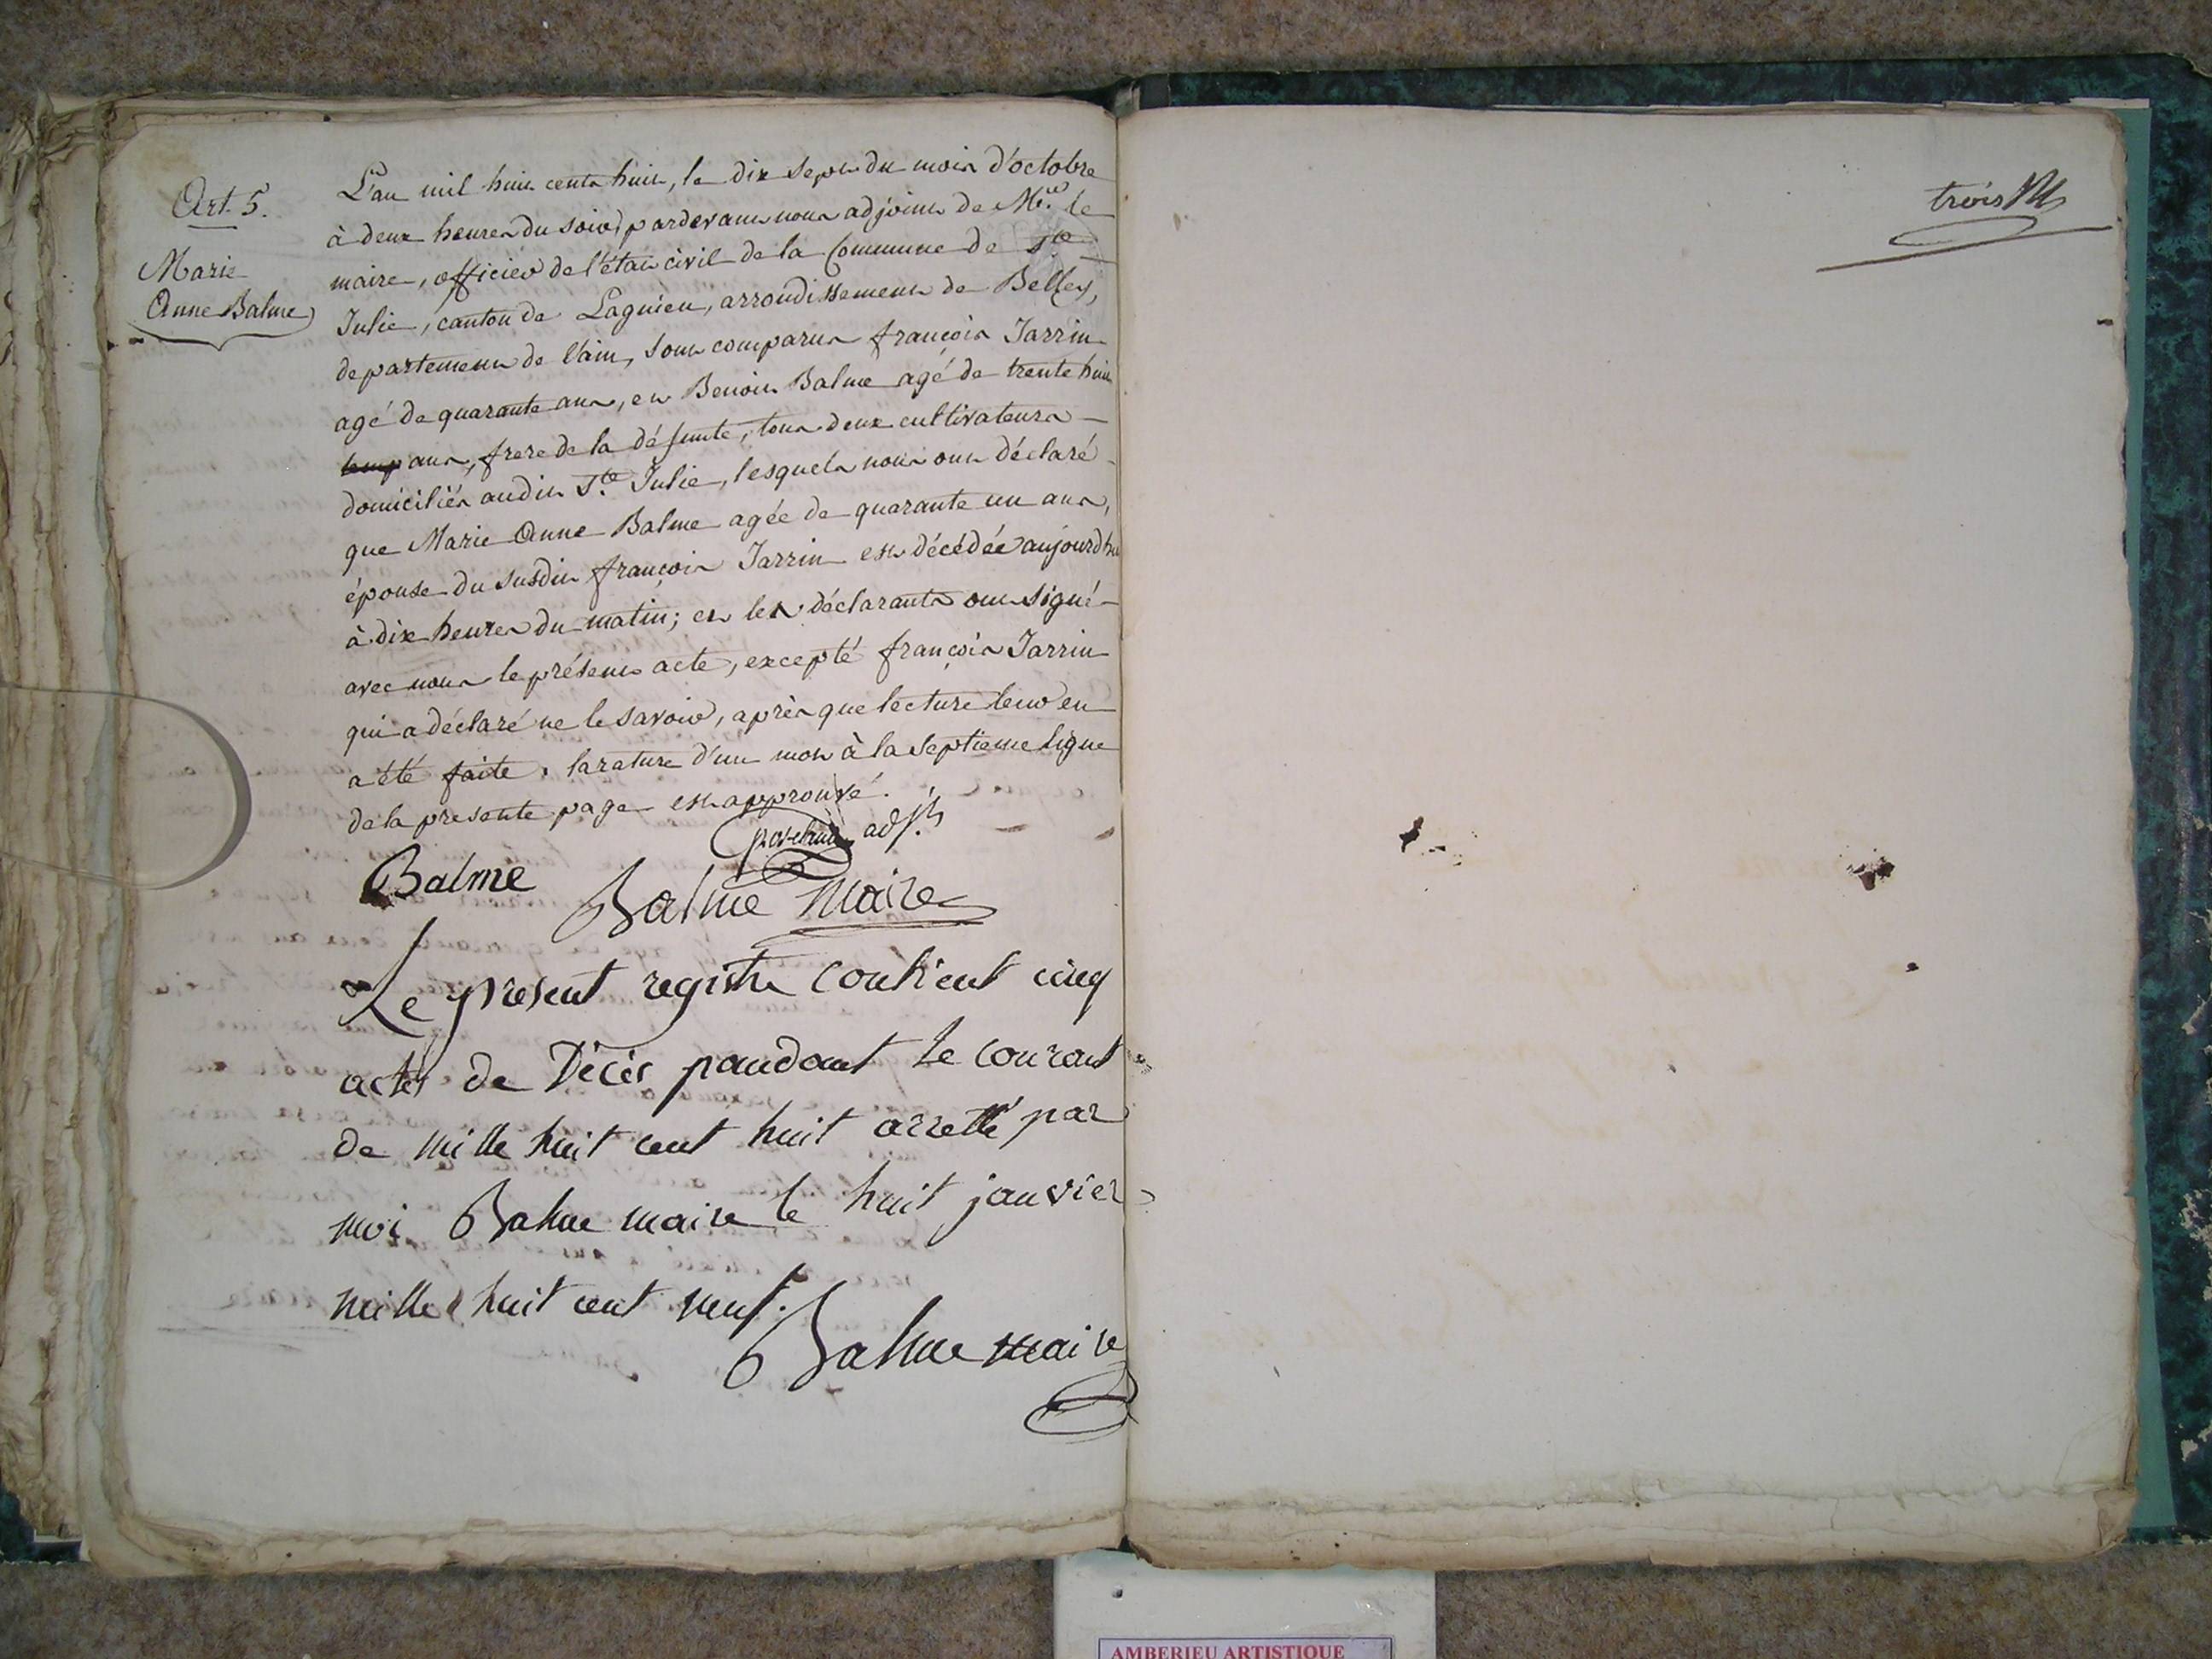 Art. 5.
Marie
Anne Balme
L'an mil huit cents huit, le dix sept du mois d'octobre
à deux heures du soir, pardevant nous adjoint de Mr. le
maire, officier de l'état civil de la Commune de Ste
Julie, canton de Lagnieu, arrondissement de Belley,
departement de l'ain, sont comparus françois Jarrin
agé de quarante ans, et Benoit Balme agé de trente huit
ans, frere de la défunte, tous deux cultivateurs
domiciliés audit Ste Julie, lesquels nous ont déclaré
que Marie Anne Balme agée de quarante un ans,
épouse du susdit françois Jarrin est décédée aujourdhui
à dix heures du matin; et les déclarants ont signé
avec nous le présent acte, excepté françois Jarrin
qui a déclaré ne le savoir, après que lecture leur en
a été faite. la rature d'un mot à la septieme ligne
de la presente page est approuvé.
adjt
Balme
Balme Maire
Le present registre contient cinq
actes de Décès pandant le courant
de mille huit cent huit arretté par
moi Balme maire le huit janvier
mille huit cent neuf.
Balme maire
trois
AMBERIEU ARTISTIQUE